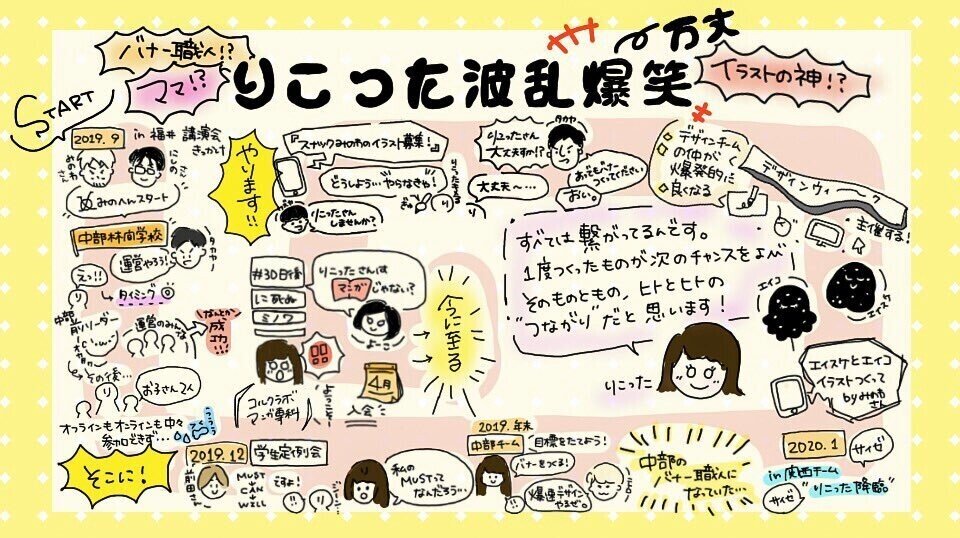 START
バナー職人!?
ママ!?
りこった波乱爆笑
万丈
イラストの神!?
2019.9
in 福井 講演会
きっかけ
みのへんスタート
中部林間学校
タカヤ
運営やろう!
えっ!!
り
タイミング
中部
前リーダー
運営のみんな
なんとか
成功!!
その後…
お子さん2人
オフラインもオンラインも中々
参加できず…
そこに!
2019.12
学生定例会
前田さん
MUST
CAN
WILL
ですよ!
私の
MUSTって
なんだろう…
2019.年末
中部チーム
目標をたてよう!
バナーをつくる!
爆速デザイン
やるぜ。
中部の
バナー職人に
なっていた…
2020.1
サイゼ
in 関西チーム
"りこった降臨"
サイゼ
エイスケとエイコ
イラストつくって
by みかゆ
さん
エイコ
エイスケ
デザインウィーク
主催する!
デザインチーム
の仲がく
爆発的に
良くなる
りこったさん
大丈夫すか!?
タカヤ
大丈夫〜…
つくってください
おい。
やります!!
『スナックみのわのイラスト募集!』
どうしよう…やらなきゃ!
りこったさん
しませんか?
#30日後
にきぬ
ミノワ
りこったさんは
マンガ
じゃない?
よーこ
コルクラボ
マンガ専科
4月
入会
ようこそ〜
今に至る
すべては繋がってるんです。
1度つくったものが次のチャンスをよぶ
そのものともの、ヒトとヒトの
"つながり"だと思います!
りこった